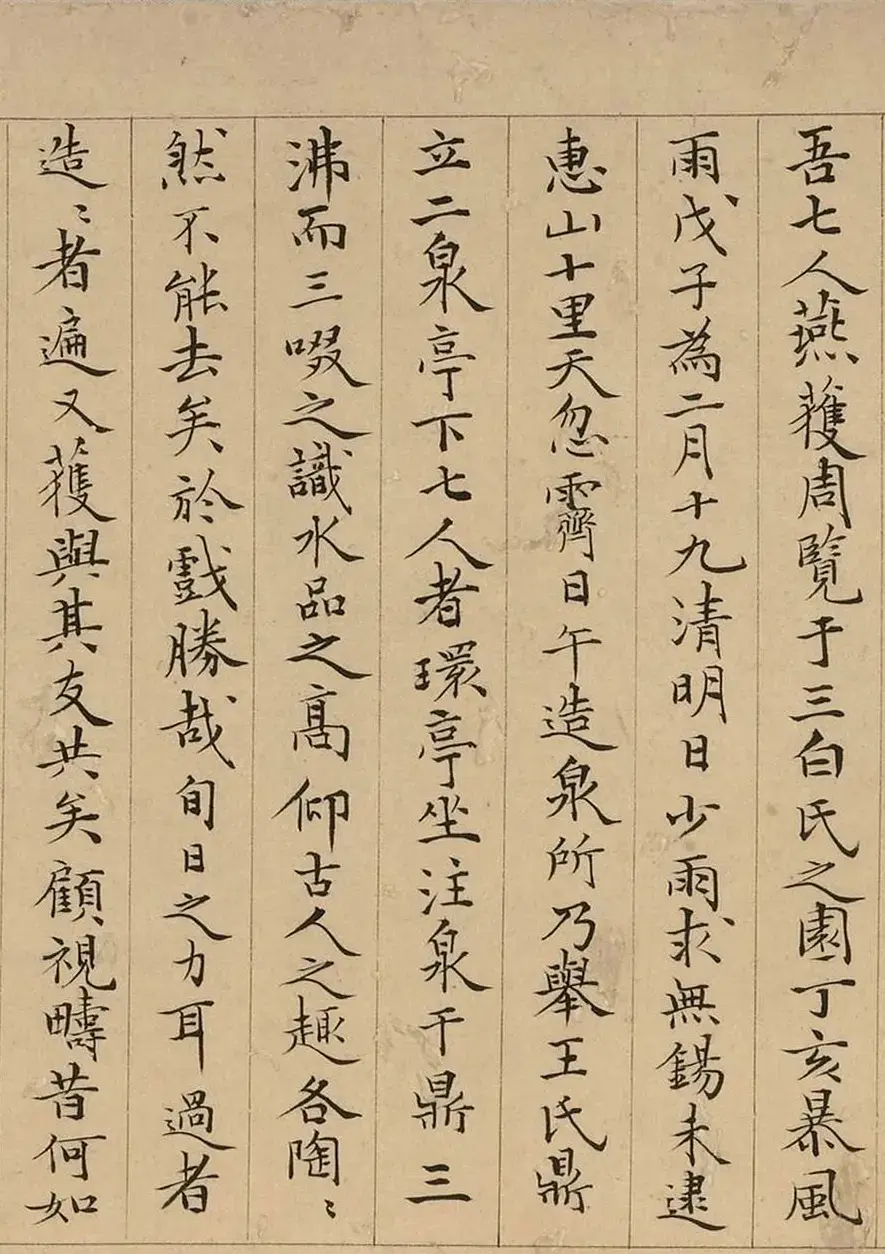 吾七人燕獲周覽于三白氏之園丁亥暴風
雨戊子為二月十九清明日少雨求無錫未逮
惠山十里天忽霽日午造泉所乃舉王氏鼎
立二泉亭下七人者環亭坐注泉于鼎三
沸而三啜之識水品之高仰古人之趣各陶〻
然不能去矣於戲勝哉旬日之力耳過者
造〻者遍又獲與其友共矣顧視疇昔何如